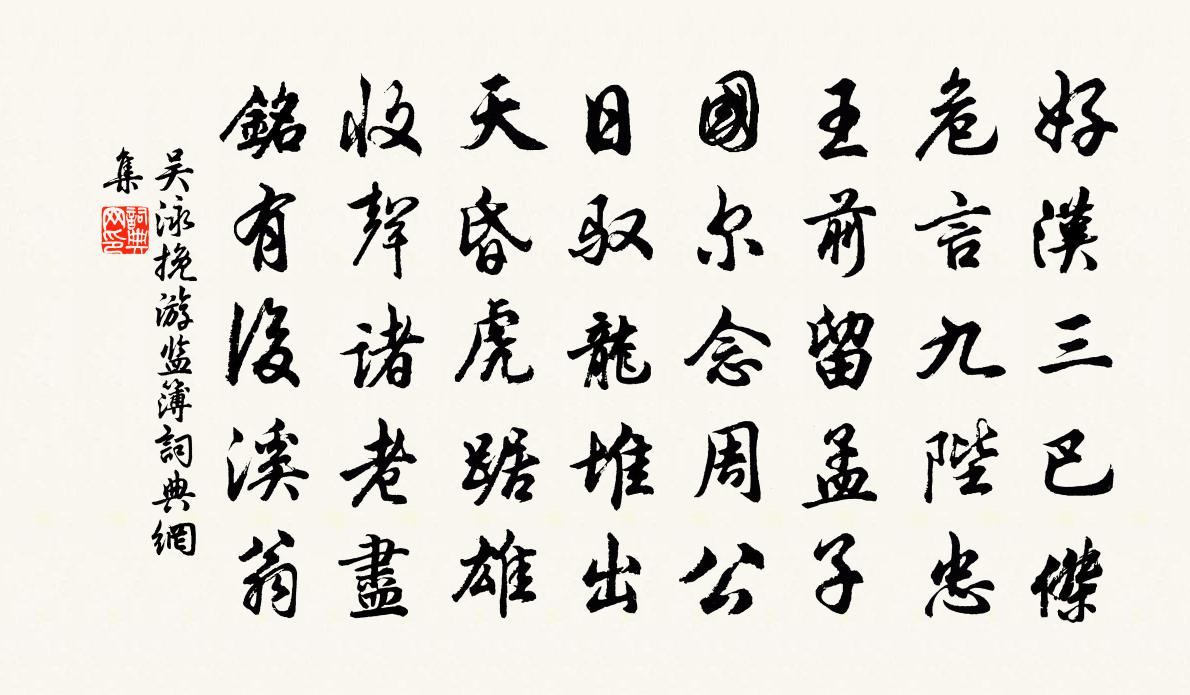 好漢三巴傑
危言九陛忠
王前留孟子
國尔念周公
日馭龍堆出
天昏虎踞雄
收聲諸老盡
銘有後溪翁
吴泳挽游监簿詞典網
集
詞典
网印